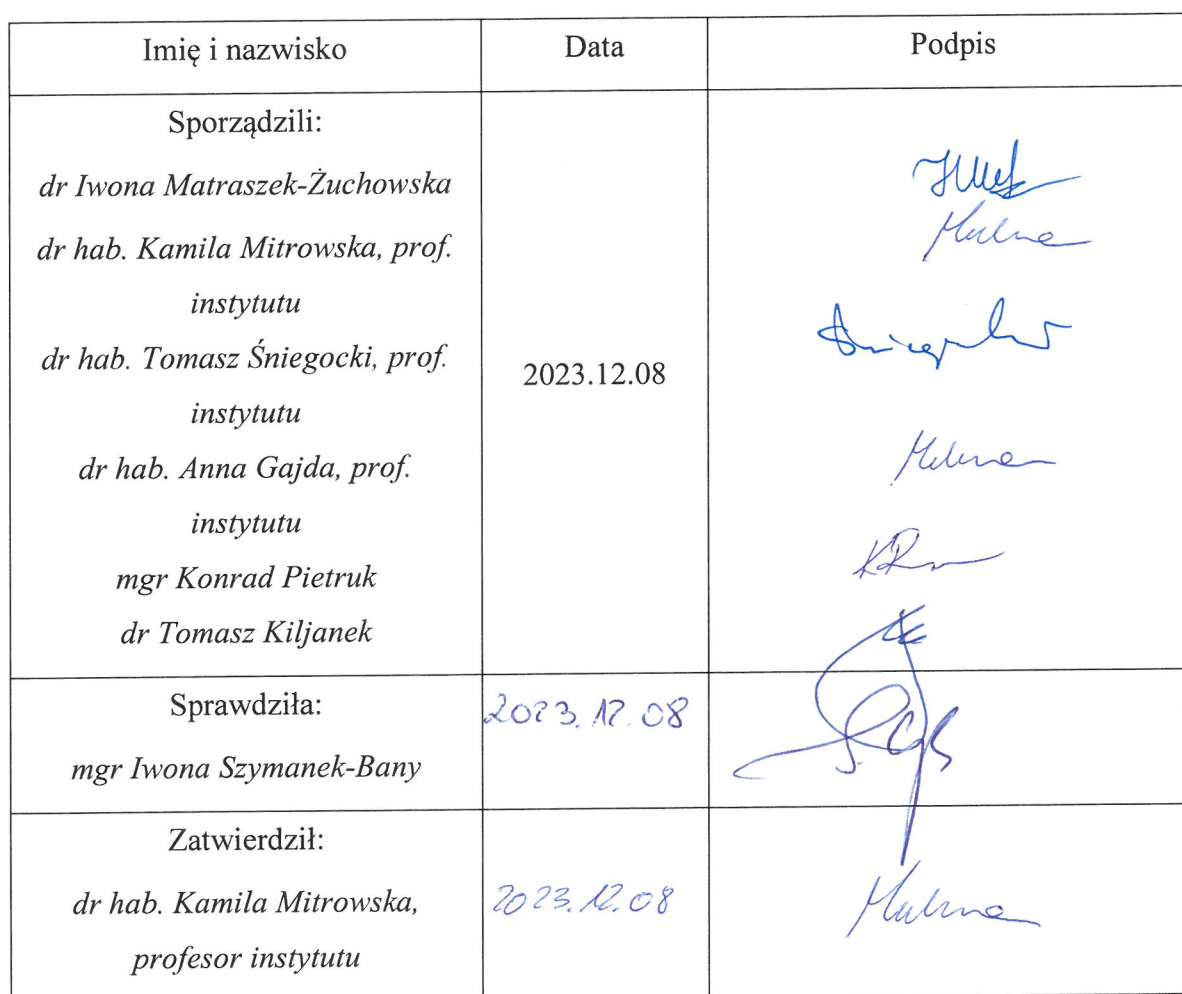 Imię i nazwisko
Data
Podpis
Sporządzili:
dr Iwona Matraszek-Żuchowska
dr hab. Kamila Mitrowska, prof.
instytutu
dr hab. Tomasz Śniegocki, prof.
instytutu
dr hab. Anna Gajda, prof.
instytutu
mgr Konrad Pietruk
dr Tomasz Kiljanek
2023.12.08
Sprawdziła:
mgr Iwona Szymanek-Bany
2023.12.08
Zatwierdził:
dr hab. Kamila Mitrowska,
profesor instytutu
2023.12.08